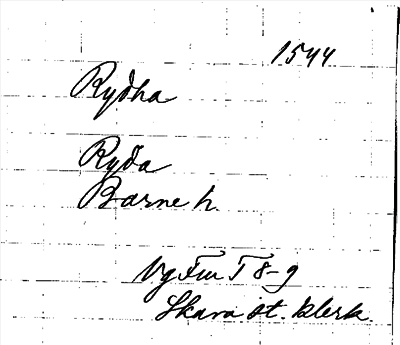 1544
Rydha
Ryda
Barne h.
Vg Fm T 8-9
Skara st. klerk.